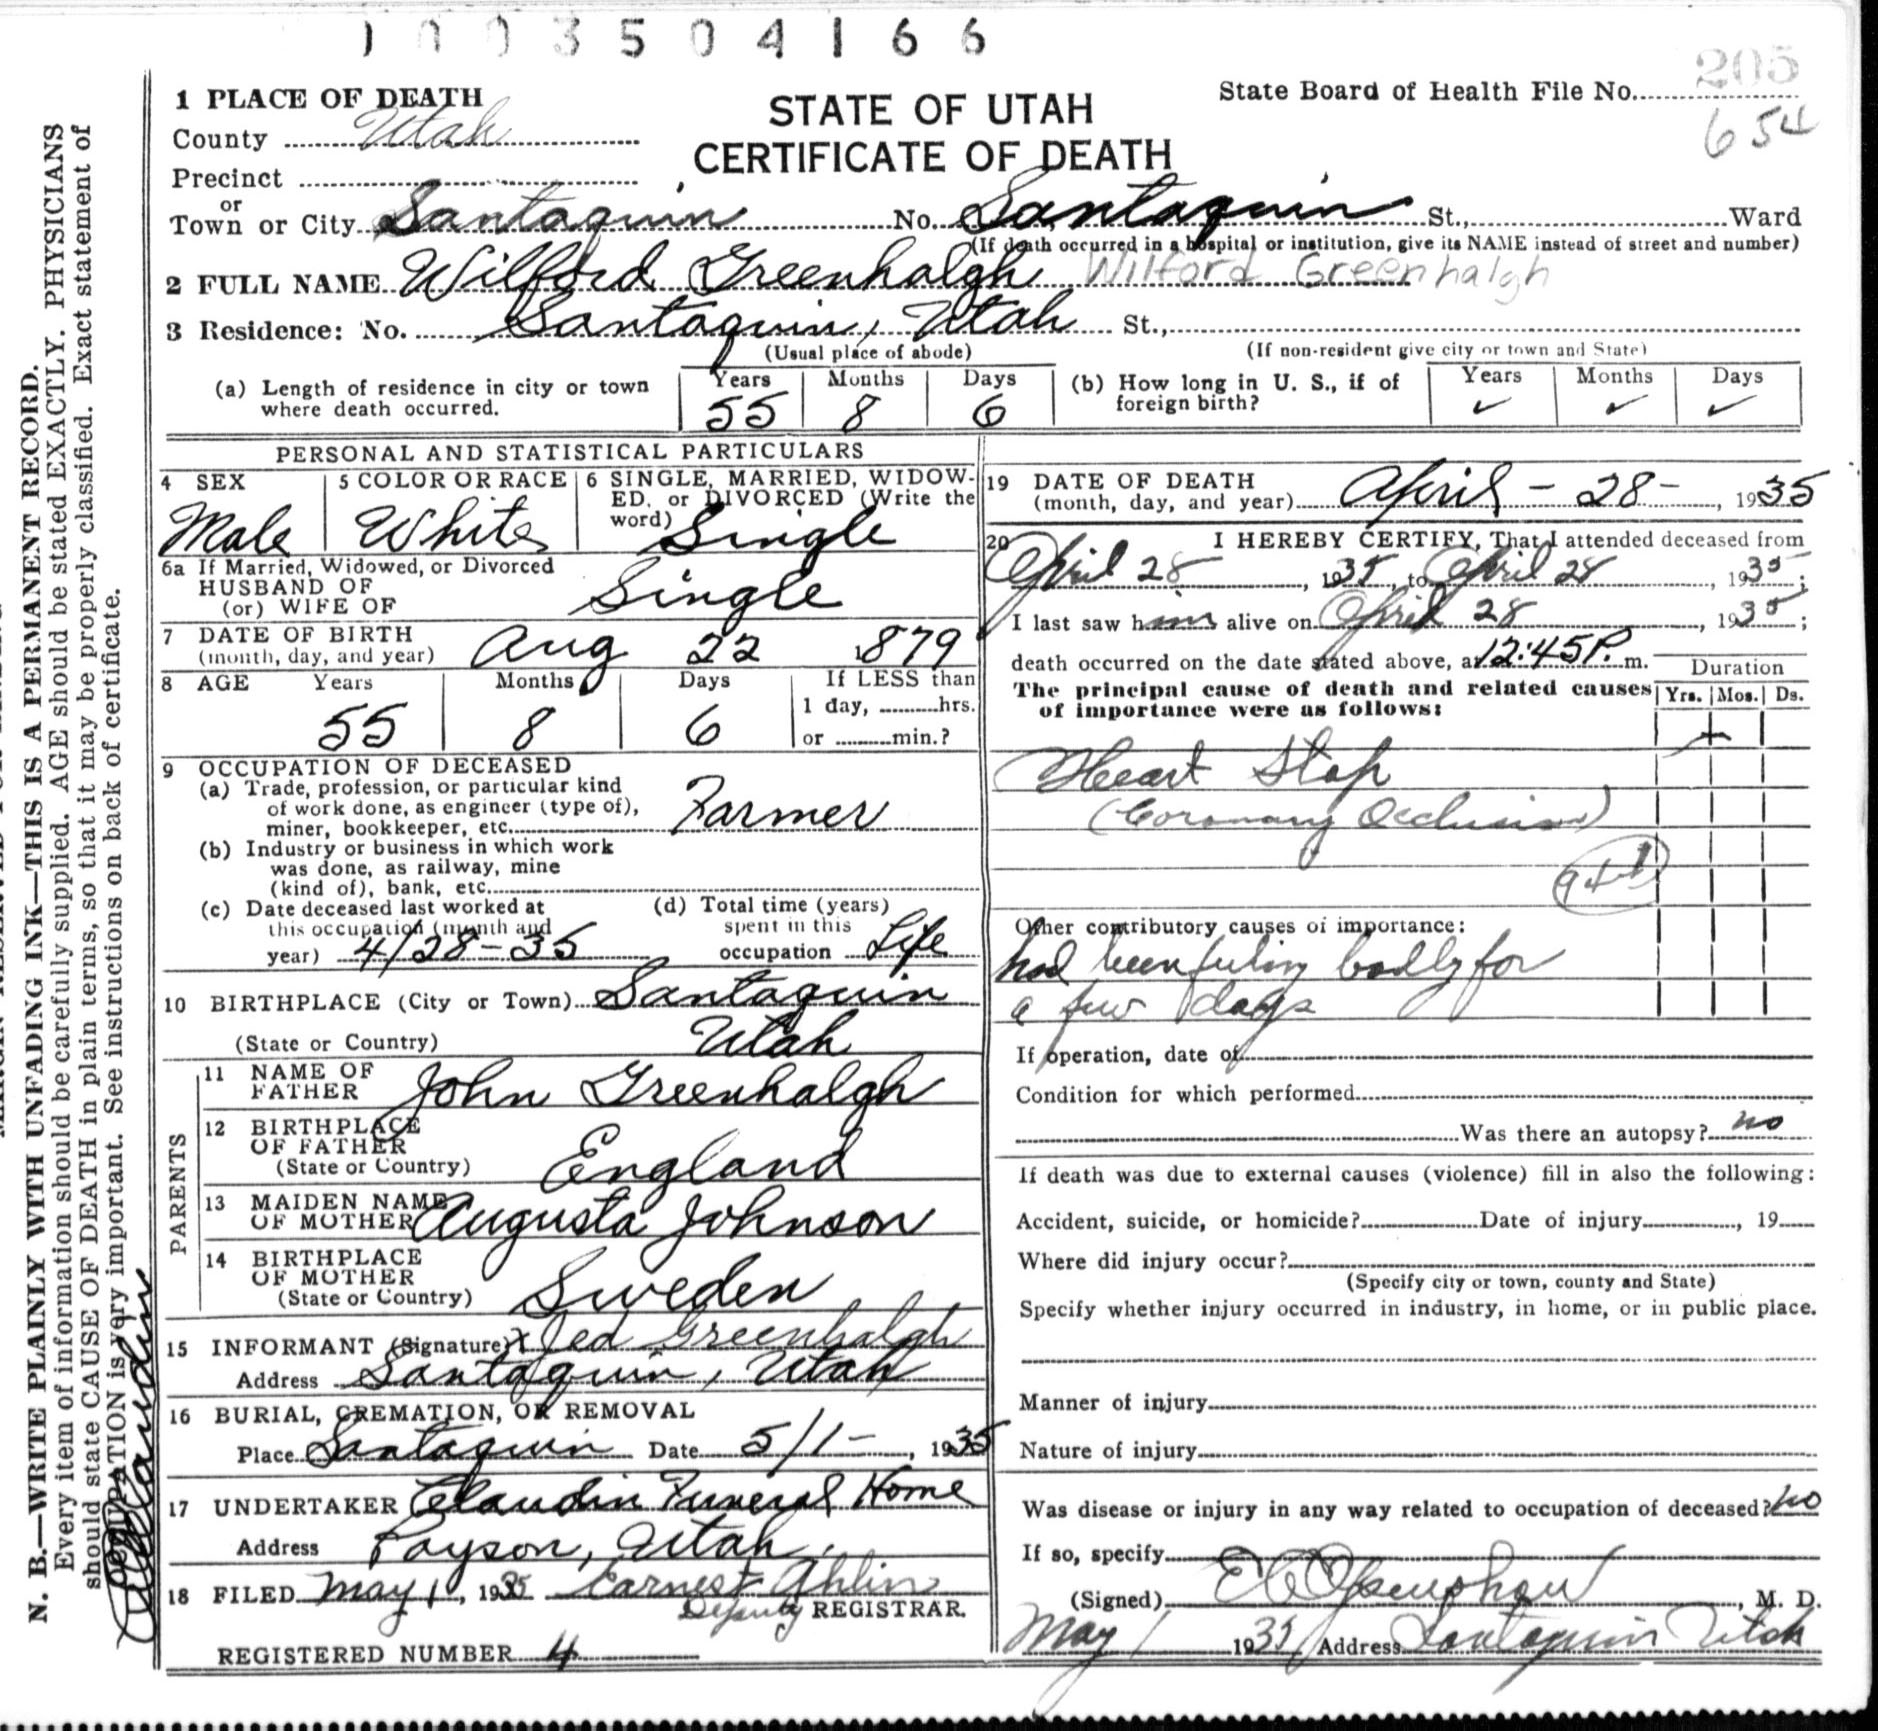 1003504166
205
State Board of Health File No.
654
1 PLACE OF DEATH
STATE OF UTAH
CERTIFICATE OF DEATH
County Utah
Precinct
or
Town or City Santaquin No. Santaquin St., Ward
(If death occurred in a hospital or institution, give its NAME instead of street and number)
2 FULL NAME Wilford Greenhalgh Wilford Greenhalgh
3 Residence: No. Santaquin, Utah St.,
(Usual place of abode) (If non-resident give city or town and State)
(a) Length of residence in city or town where death occurred. Years 55 Months 8 Days 6
(b) How long in U. S., if of foreign birth? Years ✓ Months ✓ Days ✓
PERSONAL AND STATISTICAL PARTICULARS
4 SEX
Male
5 COLOR OR RACE
White
6 SINGLE, MARRIED, WIDOW-
ED, or DIVORCED (Write the
word) Single
6a If Married, Widowed, or Divorced
HUSBAND OF
(or) WIFE OF Single
7 DATE OF BIRTH
(month, day, and year) Aug 22 1879
8 AGE Years Months Days If LESS than
55 8 6 1 day, hrs.
or min.?
9 OCCUPATION OF DECEASED
(a) Trade, profession, or particular kind
of work done, as engineer (type of),
miner, bookkeeper, etc. Farmer
(b) Industry or business in which work
was done, as railway, mine
(kind of), bank, etc.
(c) Date deceased last worked at
this occupation (month and
year) 4/28-35
(d) Total time (years)
spent in this
occupation Life
10 BIRTHPLACE (City or Town) Santaquin
(State or Country) Utah
PARENTS
11 NAME OF
FATHER John Greenhalgh
12 BIRTHPLACE
OF FATHER
(State or Country) England
13 MAIDEN NAME
OF MOTHER Augusta Johnson
14 BIRTHPLACE
OF MOTHER
(State or Country) Sweden
15 INFORMANT (Signature) x Jed Greenhalgh
Address Santaquin, Utah
16 BURIAL, CREMATION, OR REMOVAL
Place Santaquin Date 5/1-, 1935
17 UNDERTAKER Claudin Funeral Home
Address Payson, Utah.
18 FILED May 1, 1935 Earnest Ahlin
Deputy REGISTRAR.
REGISTERED NUMBER 4
19 DATE OF DEATH
(month, day, and year) April - 28 -, 1935
20 I HEREBY CERTIFY, That I attended deceased from
April 28, 1935, to April 28, 1935;
I last saw him alive on April 28, 1935;
death occurred on the date stated above, at 12:45 P. m.
Duration
The principal cause of death and related causes
of importance were as follows:
Yrs. Mos. Ds.
Heart Stop
(Coronary Occlusion)
Other contributory causes of importance:
had been feeling badly for
a few days
If operation, date of
Condition for which performed
Was there an autopsy? no
If death was due to external causes (violence) fill in also the following:
Accident, suicide, or homicide? Date of injury, 19
Where did injury occur?
(Specify city or town, county and State)
Specify whether injury occurred in industry, in home, or in public place.
Manner of injury
Nature of injury
Was disease or injury in any way related to occupation of deceased? no
If so, specify
(Signed), M. D.
May 1 1935 Address Santaquin Utah
N. B.—WRITE PLAINLY WITH UNFADING INK—THIS IS A PERMANENT RECORD.
Every item of information should be carefully supplied. AGE should be stated EXACTLY. PHYSICIANS
should state CAUSE OF DEATH in plain terms, so that it may be properly classified. Exact statement of
OCCUPATION is very important. See instructions on back of certificate.